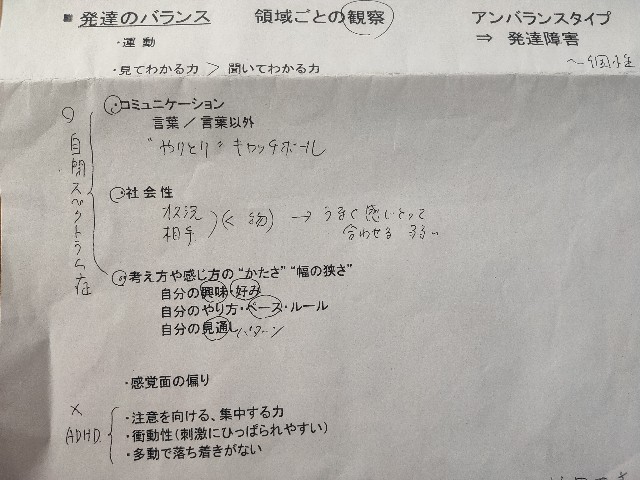 ■ 発達のバランス 領域ごとの観察 アンバランスタイプ
・運動 ⇒ 発達障害
・見てわかる力 > 聞いてわかる力 〜個性
・コミュニケーション
言葉／言葉以外
"やりとり" キャッチボール
自閉スペクトラム症
・社会性
状況 (< 物) → うまく感じとって
相手 合わせる 弱い
・考え方や感じ方の“かたさ”“幅の狭さ”
自分の興味・好み
自分のやり方・ペース・ルール
自分の見通し パターン
・感覚面の偏り
×
ADHD
・注意を向ける、集中する力
・衝動性(刺激にひっぱられやすい)
・多動で落ち着きがない